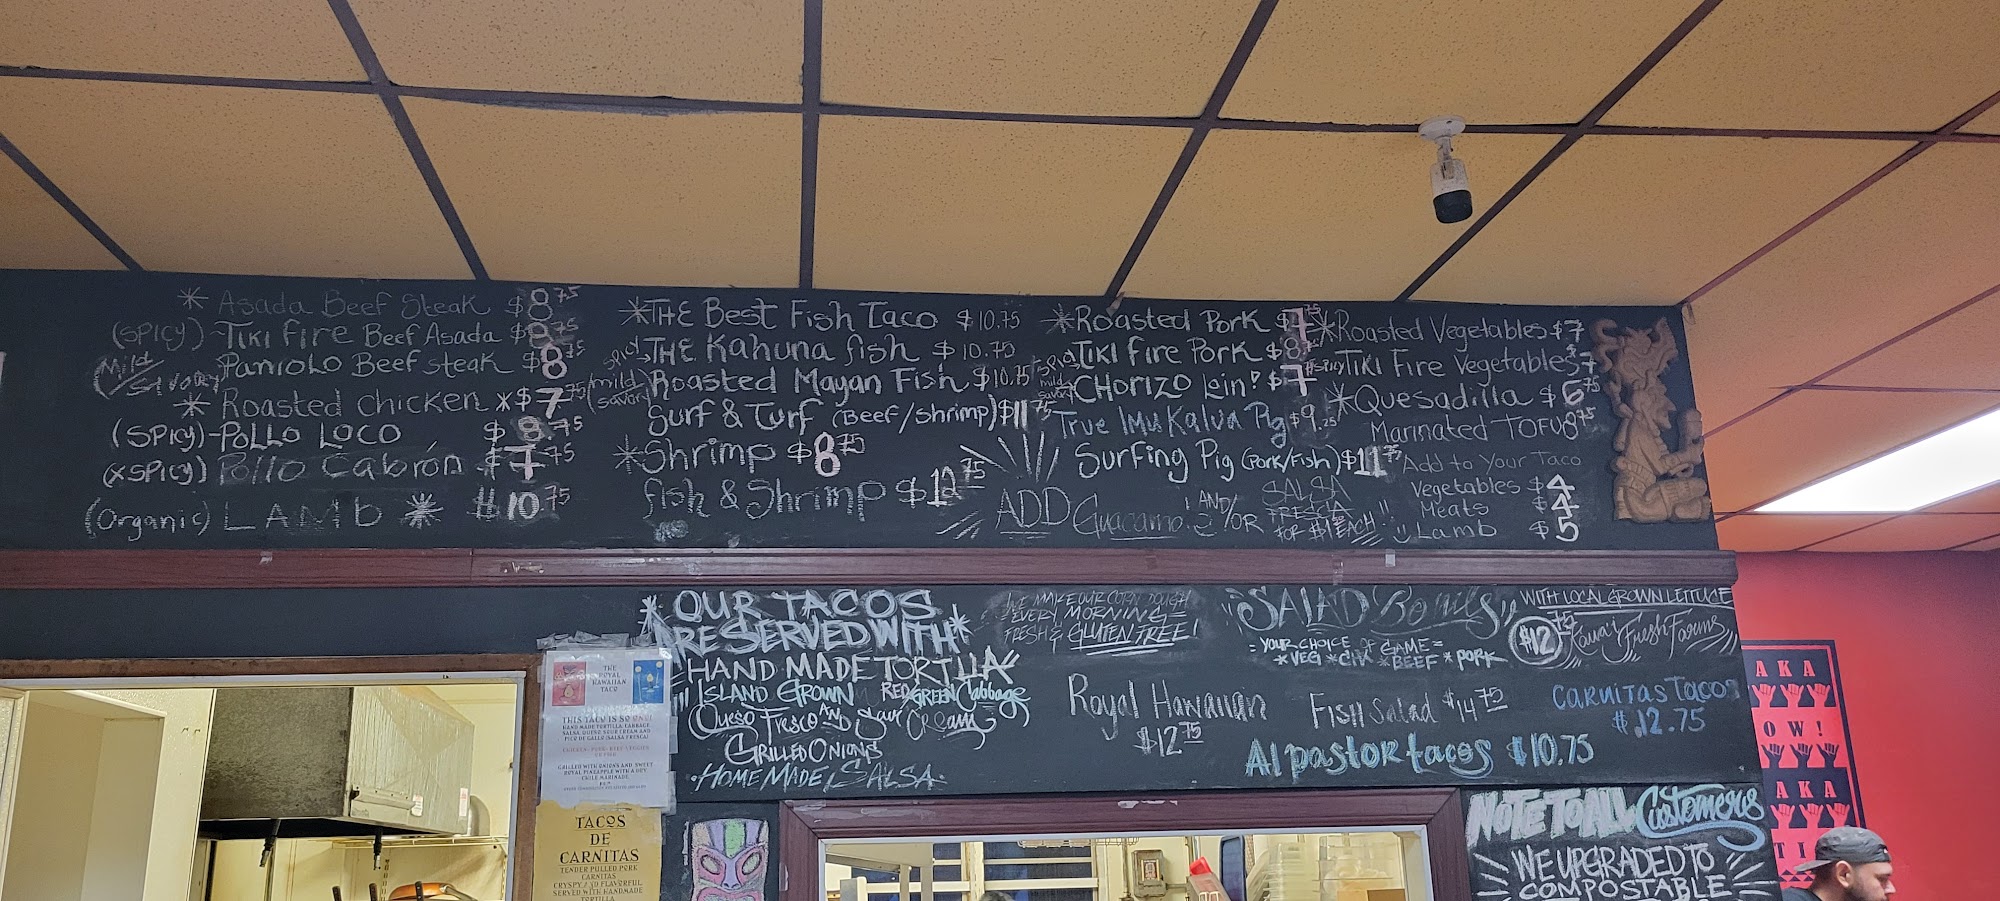 * Asada Beef Steak $8.75
(Spicy)-Tiki Fire Beef Asada $8.75
(Mild/Savory) Paniolo Beef Steak $8.75
* Roasted Chicken * $7.75
(Spicy)-Pollo Loco $8.75
(xSpicy) Pollo Cabrón $7.75
(Organic) LAMb * $10.75
*THE Best Fish Taco $10.75
Spicy→THE Kahuna fish $10.75
(mild/savory) Roasted Mayan Fish $10.75
Surf & Turf (Beef/Shrimp) $11.75
*Shrimp $8.75
fish & Shrimp $12.75
*Roasted Pork $7.75
Spicy→Tiki Fire Pork $8.75
mild savory CHORIZO Loin! $7
True Imu Kalua Pig $9.25
Surfing Pig (Pork/Fish) $11.75
ADD Guacamo. AND/OR SALSA FRESCA FOR $1 EACH!
*Roasted Vegetables $7
*Spicy TIKI Fire Vegetables 7
*Quesadilla $6.75
Marinated TOFU 8.75
Add to Your Taco
Vegetables $4
Meats $4
Lamb $5
*OUR TACOS
ARE SERVED WITH*
HAND MADE TORTILLA
ISLAND GROWN RED GREEN Cabbage
Queso Fresco AND Sour Cream
GRILLED ONIONS
·HOME MADE, SALSA·
WE MAKE OUR CORN DOUGH
EVERY MORNING
FRESH & GLUTEN FREE!
"SALAD Bowls"
WITH LOCAL GROWN LETTUCE
$12.75 Kaua'i Fresh Farms
=YOUR CHOICE OF GAME=
*VEG *CHK *BEEF *PORK
Royal Hawaiian
$12.75
Fish Salad $14.75
Carnitas Tacos
$12.75
Al pastor tacos $10.75
THE
ROYAL
HAWAIIAN
TACO
THIS TACO IS SO ONO!
HAND MADE TORTILLA, CABBAGE,
SALSA, QUESO, SOUR CREAM AND
PICO DE GALLO (SALSA FRESCA)
GRILLED WITH ONIONS AND SWEET
ROYAL PINEAPPLE WITH A DRY
CHILE MARINADE
TACOS
DE
CARNITAS
TENDER PULLED PORK
CARNITAS
CRYSPY AND FLAVORFUL
SERVED WITH HANDMADE
TORTILLA
NOTE TO ALL Customers
WE UPGRADED TO
COMPOSTABLE
AKA
OW!
AKA
TI